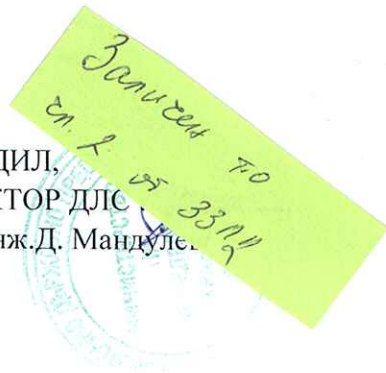 Заличен по
чл. 2 от ЗЗЛД
ДИЛ,
КТОР ДЛС
нж.Д. Мандулев